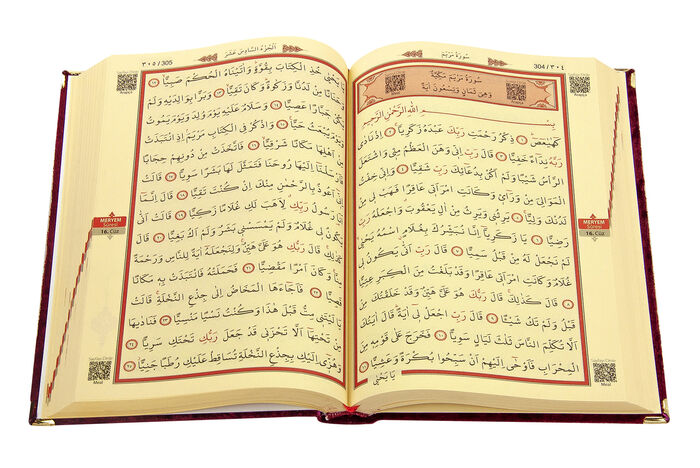 سُورَةُ مَرْيَمَ
304/٣٠٤
سُورَةُ مَرْيَمَ مَكِّيَّةٌ
وَهِيَ ثَمَانٍ وَتِسْعُونَ اٰيَةً
بِسْــــــمِ اللّٰهِ الرَّحْمٰنِ الرَّح۪يمِ
كٓهٰيٰعٓصٓ ﴿١﴾ ذِكْرُ رَحْمَتِ رَبِّكَ عَبْدَهُ زَكَرِيَّا ﴿٢﴾ اِذْ نَادٰى
رَبَّهُ نِدَٓاءً خَفِيًّا ﴿٣﴾ قَالَ رَبِّ اِنّ۪ي وَهَنَ الْعَظْمُ مِنّ۪ي وَاشْتَعَلَ
الرَّأْسُ شَيْبًا وَلَمْ اَكُنْ بِدُعَٓائِكَ رَبِّ شَقِيًّا ﴿٤﴾ وَاِنّ۪ي خِفْتُ
الْمَوَالِيَ مِنْ وَرَٓاء۪ي وَكَانَتِ امْرَاَت۪ي عَاقِرًا فَهَبْ ل۪ي مِنْ
لَدُنْكَ وَلِيًّا ﴿٥﴾ يَرِثُن۪ي وَيَرِثُ مِنْ اٰلِ يَعْقُوبَ وَاجْعَلْهُ رَبِّ
رَضِيًّا ﴿٦﴾ يَا زَكَرِيَّٓا اِنَّا نُبَشِّرُكَ بِغُلَامٍ اسْمُهُ يَحْيٰى
لَمْ نَجْعَلْ لَهُ مِنْ قَبْلُ سَمِيًّا ﴿٧﴾ قَالَ رَبِّ اَنّٰى يَكُونُ ل۪ي
غُلَامٌ وَكَانَتِ امْرَاَت۪ي عَاقِرًا وَقَدْ بَلَغْتُ مِنَ الْكِبَرِ عِتِيًّا
﴿٨﴾ قَالَ كَذٰلِكَ قَالَ رَبُّكَ هُوَ عَلَيَّ هَيِّنٌ وَقَدْ خَلَقْتُكَ مِنْ
قَبْلُ وَلَمْ تَكُ شَيْـًٔا ﴿٩﴾ قَالَ رَبِّ اجْعَلْ ل۪ٓي اٰيَةً قَالَ اٰيَتُكَ
اَلَّا تُكَلِّمَ النَّاسَ ثَلٰثَ لَيَالٍ سَوِيًّا ﴿١٠﴾ فَخَرَجَ عَلٰى قَوْمِه۪ مِنَ
الْمِحْرَابِ فَاَوْحٰٓى اِلَيْهِمْ اَنْ سَبِّحُوا بُكْرَةً وَعَشِيًّا ﴿١١﴾
يَا يَحْيٰى
MERYEM
Sûresi
16. Cüz
Meal
اَلْجُزْءُ السَّادِسَ عَشَرَ
٣٠٥/305
يَا يَحْيٰى خُذِ الْكِتَابَ بِقُوَّةٍ وَاٰتَيْنَاهُ الْحُكْمَ صَبِيًّا ﴿١٢﴾
وَحَنَانًا مِنْ لَدُنَّا وَزَكٰوةً وَكَانَ تَقِيًّا ﴿١٣﴾ وَبَرًّا بِوَالِدَيْهِ وَلَمْ
يَكُنْ جَبَّارًا عَصِيًّا ﴿١٤﴾ وَسَلَامٌ عَلَيْهِ يَوْمَ وُلِدَ وَيَوْمَ يَمُوتُ
وَيَوْمَ يُبْعَثُ حَيًّا ﴿١٥﴾ وَاذْكُرْ فِي الْكِتَابِ مَرْيَمَ اِذِ انْتَبَذَتْ
مِنْ اَهْلِهَا مَكَانًا شَرْقِيًّا ﴿١٦﴾ فَاتَّخَذَتْ مِنْ دُونِهِمْ حِجَابًا
فَاَرْسَلْنَٓا اِلَيْهَا رُوحَنَا فَتَمَثَّلَ لَهَا بَشَرًا سَوِيًّا ﴿١٧﴾ قَالَتْ
اِنّ۪ٓي اَعُوذُ بِالرَّحْمٰنِ مِنْكَ اِنْ كُنْتَ تَقِيًّا ﴿١٨﴾ قَالَ اِنَّمَٓا
اَنَا رَسُولُ رَبِّكِ لِاَهَبَ لَكِ غُلَامًا زَكِيًّا ﴿١٩﴾ قَالَتْ اَنّٰى
يَكُونُ ل۪ي غُلَامٌ وَلَمْ يَمْسَسْن۪ي بَشَرٌ وَلَمْ اَكُ بَغِيًّا ﴿٢٠﴾ قَالَ
كَذٰلِكِ قَالَ رَبُّكِ هُوَ عَلَيَّ هَيِّنٌ وَلِنَجْعَلَهُٓ اٰيَةً لِلنَّاسِ وَرَحْمَةً
مِنَّا وَكَانَ اَمْرًا مَقْضِيًّا ﴿٢١﴾ فَحَمَلَتْهُ فَانْتَبَذَتْ بِه۪ مَكَانًا
قَصِيًّا ﴿٢٢﴾ فَاَجَٓاءَهَا الْمَخَاضُ اِلٰى جِذْعِ النَّخْلَةِ قَالَتْ
يَا لَيْتَن۪ي مِتُّ قَبْلَ هٰذَا وَكُنْتُ نَسْيًا مَنْسِيًّا ﴿٢٣﴾ فَنَادٰيهَا
مِنْ تَحْتِهَٓا اَلَّا تَحْزَن۪ي قَدْ جَعَلَ رَبُّكِ تَحْتَكِ سَرِيًّا ﴿٢٤﴾
وَهُزّ۪ٓي اِلَيْكِ بِجِذْعِ النَّخْلَةِ تُسَاقِطْ عَلَيْكِ رُطَبًا جَنِيًّا ﴿٢٥﴾
MERYEM
Sûresi
16. Cüz
Meal